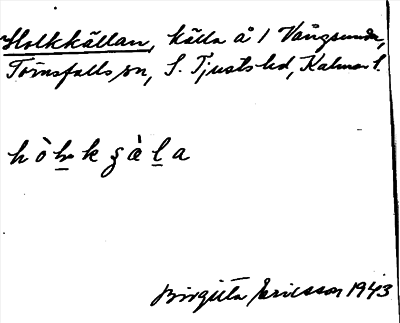 Holkkällan, källa å 1 Vångsunda,
Törnsfalls sn, S. Tjusts hd, Kalmar l.
h ò l k g à l a
Birgitta Ericsson 1943